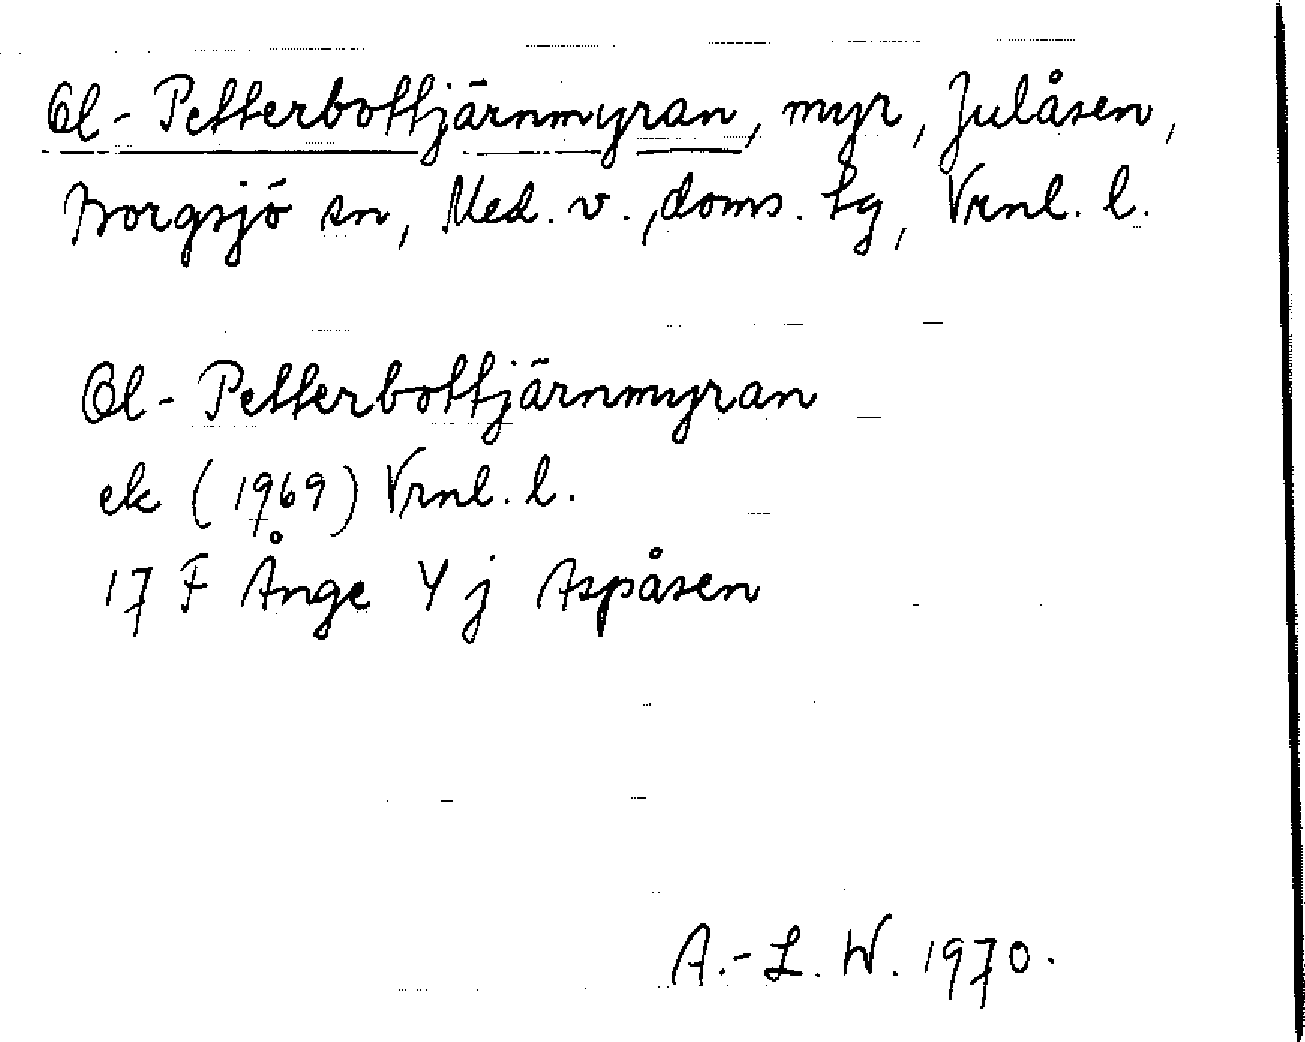 Ol-Petterbottjärnmyran, myr, Julåsen,
Borgsjö sn, Med. v. doms. tg, Vrnl. l.
Ol-Petterbottjärnmyran
ek (1969) Vrnl. l.
17 F Ånge Y j Aspåsen
A.-L. W. 1970.